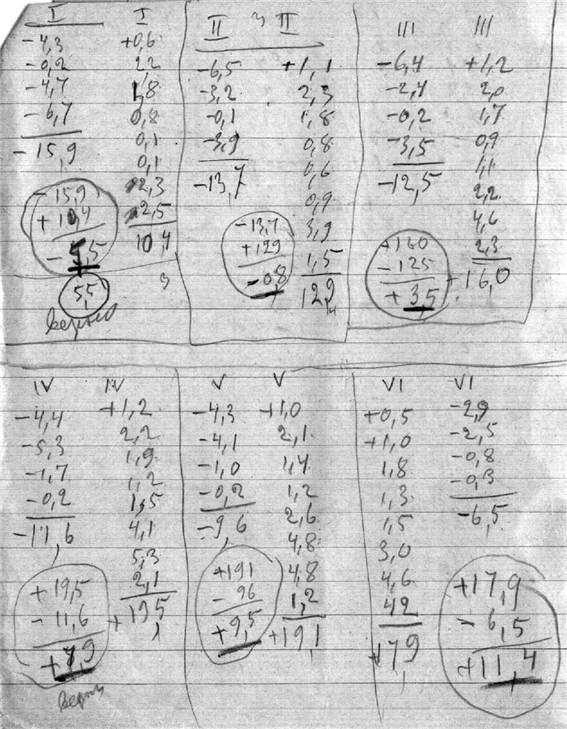 I I
-4,3 +0,6
-0,2 2,2
-4,7 1,8
-6,7 0,8
-15,9 0,1
0,1
-15,9 2,3
+10,4 2,5
-5,5 10,4
5,5
верно
II II
-6,5 +1,1
-3,2 2,3
-0,1 1,8
-3,9 0,8
-13,7 0,6
0,9
-13,7 3,9
+129 1,5
-0,8 129
III III
-6,4 +1,2
-2,4 2,0
-0,2 1,7
-3,5 0,9
-12,5 1,1
2,2
4,6
+160 2,3
-125 +16,0
+3,5
IV IV
-4,4 +1,2
-5,3 2,2
-1,7 1,9
-0,2 1,2
-11,6 1,5
4,1
5,3
+19,5 2,1
-11,6 +195
+7,9
верно
V V
-4,3 +1,0
-4,1 2,1
-1,0 1,4
-0,2 1,2
-9,6 2,6
4,8
+191 4,8
-96 1,2
+9,5 +191
VI VI
+0,5 -2,9
+1,0 -2,5
1,8 -0,8
1,3 -0,3
1,5 -6,5
3,0
4,6 +17,9
42 -6,5
+179 +11,4